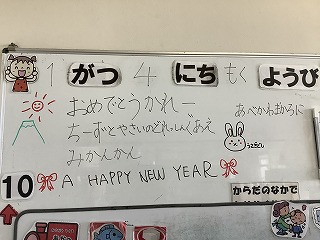 1 がつ 4 にち もく ようび
おめでとうかれー
ちーずとやさいのどれっしんぐあえ
みかんかん
あべかわまかろに
うさぎ
10 A HAPPY NEW YEAR
からだのなかで